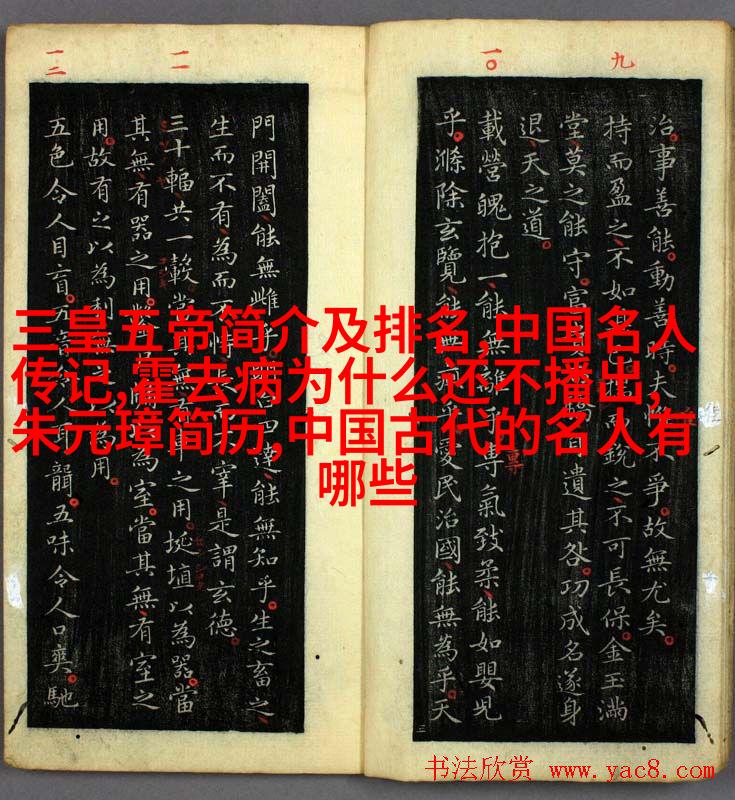 九
一〇
一一
一二
治。事善能。動善時。夫不爭。故無尤矣。
持而盈之、不如其已。而銳之、不可長保。金玉滿
堂、莫之能守。富遺其咎。功成名遂身
退、天之道。
載營魄抱一、能無離乎。專氣致柔、能如嬰兒
乎。滌除玄覽、能無疵乎。愛民治國、能無為乎。天
門開闔、能無雌乎。四達、能無知乎。生之畜之、
生而不有、為而不恃、宰、是謂玄德。
三十輻、共一轂、當其無之用。埏埴以為器、當
其無、有器之用。鑿為室。當其無、有室之
用。故有之以為利、用。
五色令人目盲。五音人耳聾。五味令人口爽。馳
三皇五帝简介及排名,中国名人
传记,霍去病为什么还不播出,
朱元璋简历,中国古代的名人有
哪些
书法欣赏 www.yac8.com